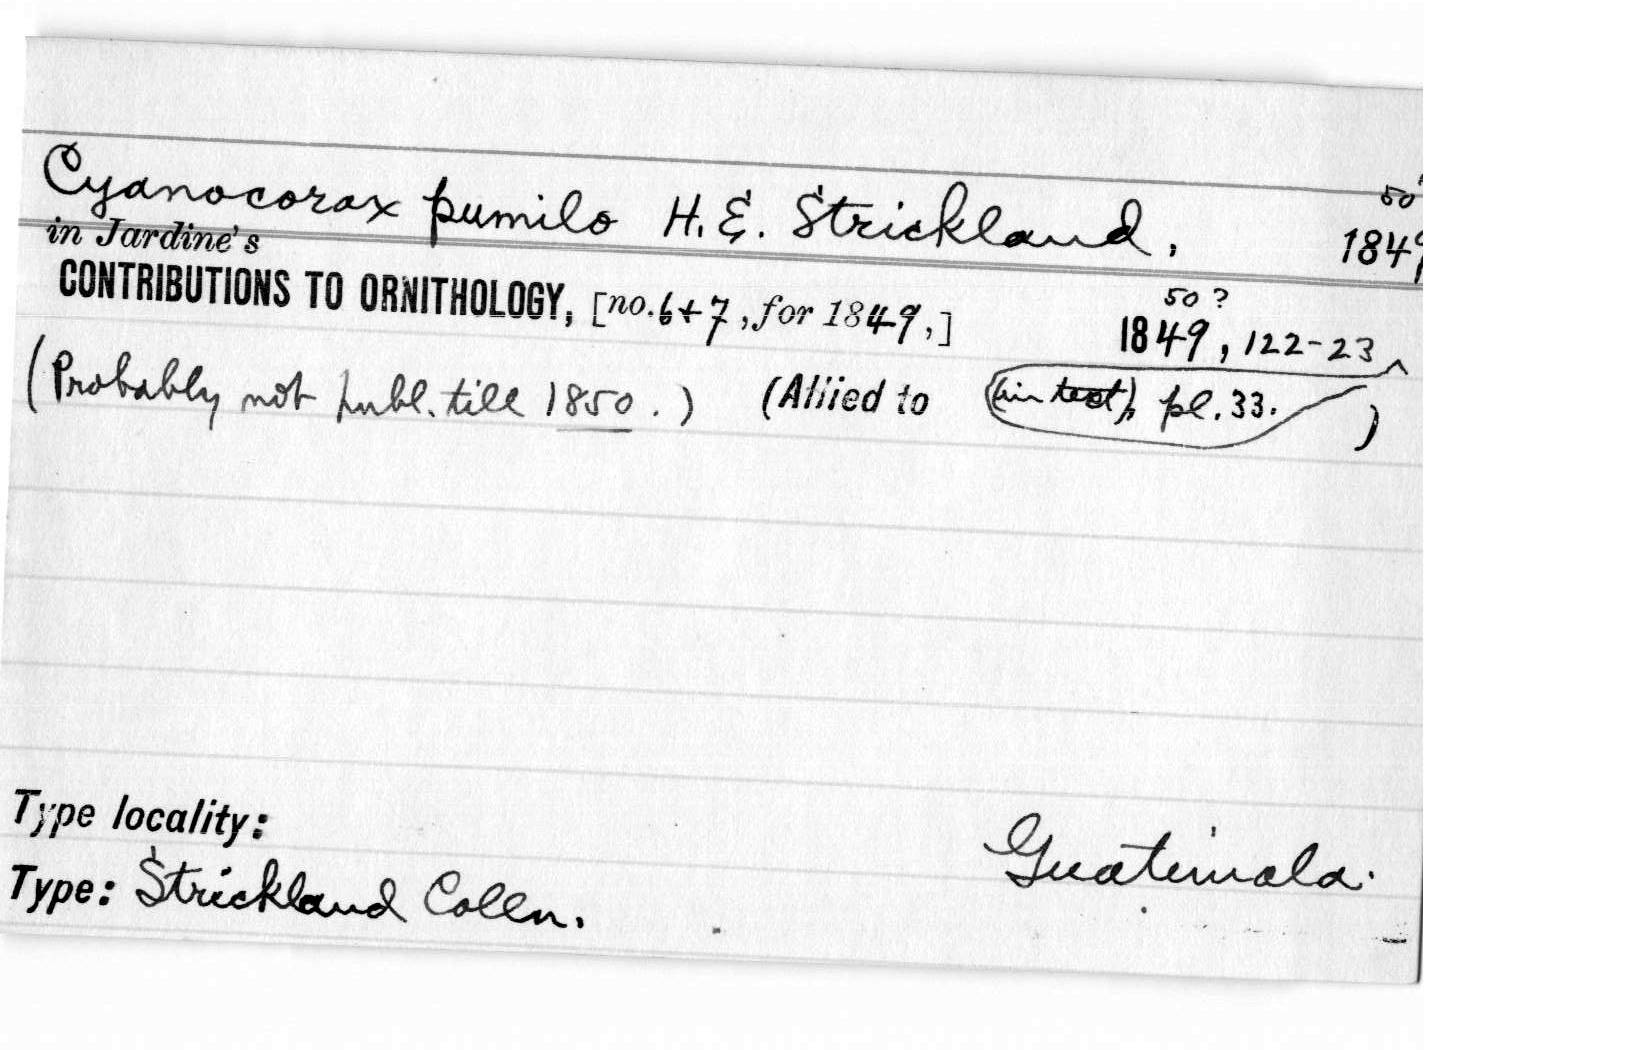 50?
Cyanocorax pumilo H. E. Strickland, 1849
in Jardine's
50?
CONTRIBUTIONS TO ORNITHOLOGY, [no. 6+7, for 1849,] 1849, 122-23
(Probably not publ. till 1850.) (Allied to (in text), pl. 33. )
Type locality: Guatemala.
Type: Strickland Colln.